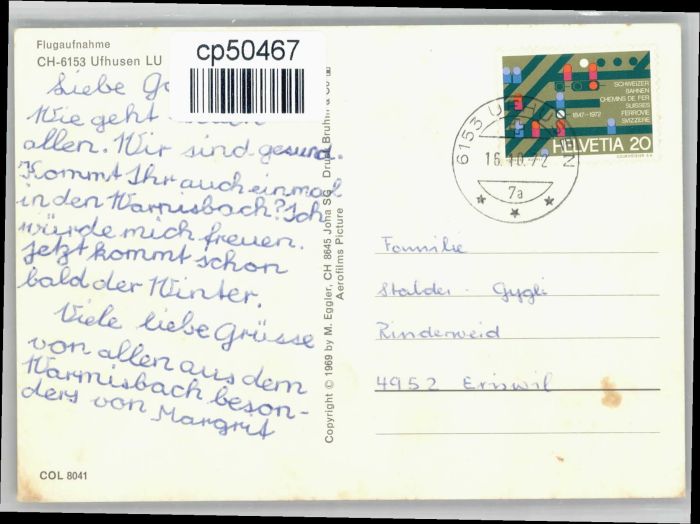 Flugaufnahme
CH-6153 Ufhusen LU
cp50467
Liebe
Wie geht
allen. Wir sind gesund.
Kommt Ihr auch einmal
in den Warmisbach? Ich
würde mich freuen.
Jetzt kommt schon
bald der Winter.
Viele liebe Grüsse
von allen aus dem
Warmisbach beson-
ders von Margrit
COL 8041
Copyright © 1969 by M. Eggler, CH 8645 Jona SG Druck Bruhin &
Aerofilms Picture
6153 UFHUSEN
16.10.72
7a
SCHWEIZER
BAHNEN
CHEMINS DE FER
SUISSES
FERROVIE
SVIZZERE
1847-1972
HELVETIA 20
Familie
Stalder-Gygli
Rinderweid
4952 Eriswil